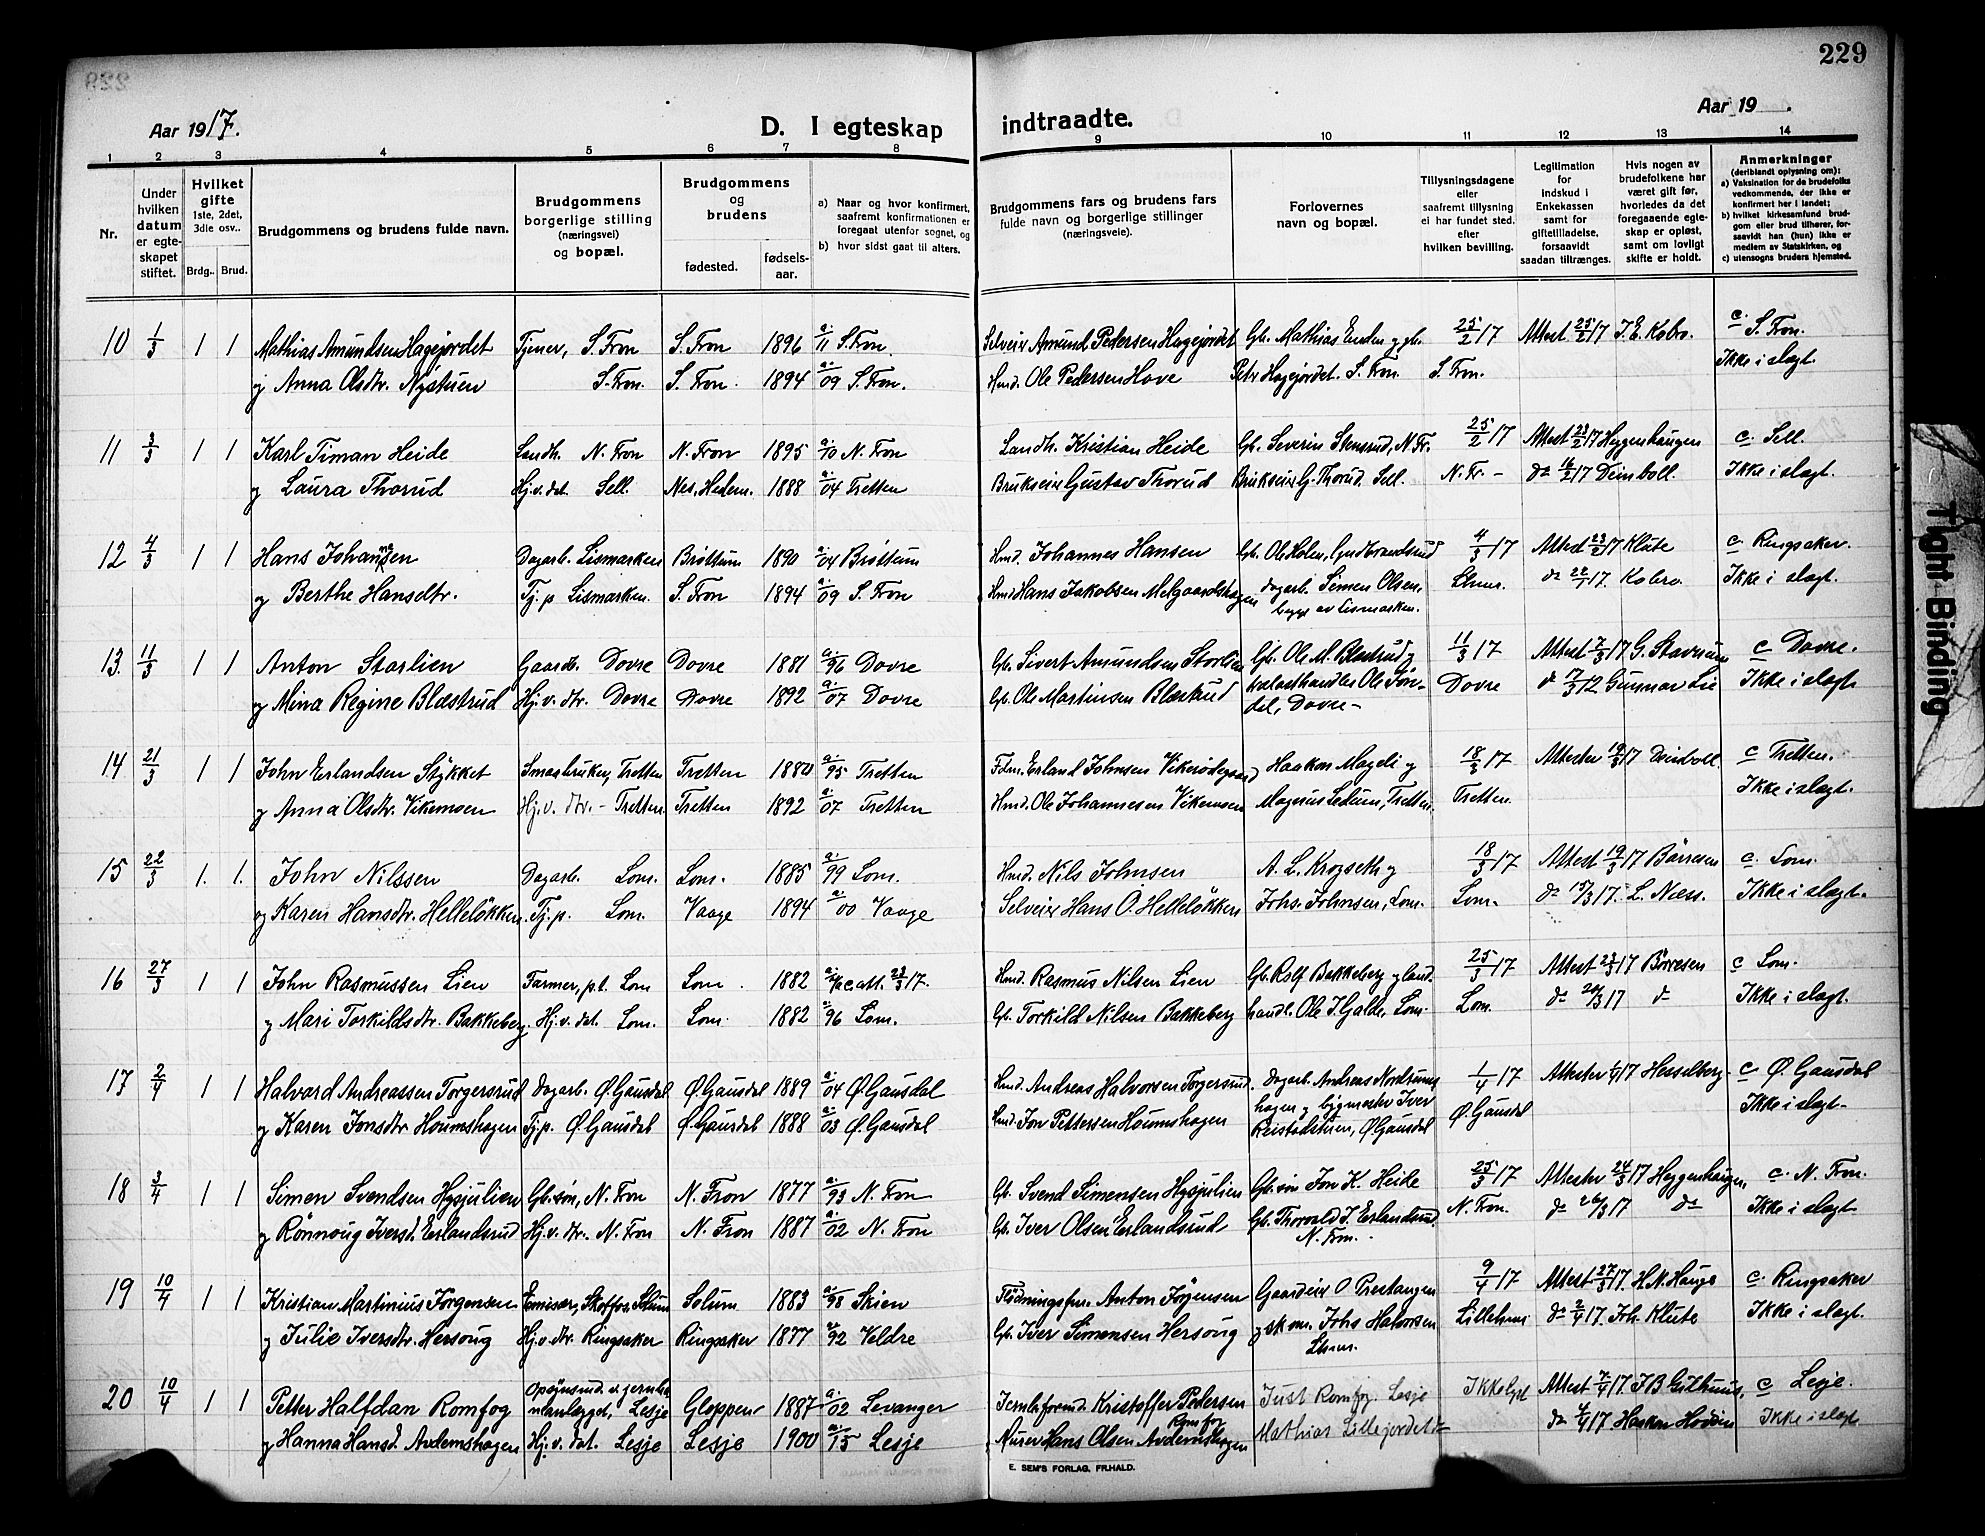 229
Aar 1917.
D. I egteskap
indtraadte.
Aar 19 .
1 2 3 4 5 6 7 8 9 10 11 12 13 14
Nr.
Under hvilken datum er egteskapet stiftet.
Hvilket gifte 1ste, 2det, 3die osv..
Brdg.. Brud.
Brudgommens og brudens fulde navn.
Brudgommens borgerlige stilling (næringsvei) og bopæl.
Brudgommens og brudens
fødested.
fødselsaar.
a) Naar og hvor konfirmert, saafremt konfirmationen er foregaat utenfor sognet, og
b) hvor sidst gaat til alters.
Brudgommens fars og brudens fars fulde navn og borgerlige stillinger (næringsveie).
Forlovernes navn og bopæl.
Tillysningsdagene eller saafremt tillysning ei har fundet sted, efter hvilken bevilling.
Legitimation for indskud i Enkekassen samt for giftetilladelse, forsaavidt saadan tiltrænges.
Hvis nogen av brudefolkene har været gift før, hvorledes da det foregaaende egteskap er opløst, samt om lovligt skifte er holdt.
Anmerkninger (deriblandt oplysning om):
a) Vaksination for de brudefolks vedkommende, der ikke er konfirmert her i landet;
b) hvilket kirkesamfund brudgom eller brud tilhører, forsaavidt han (hun) ikke er medlem av Statskirken, og
c) utensogns bruders hjemsted.
10 1/3 1 1 Mathias Amundsen Hagejordet Tjener, S. Fron S. Fron 1896 a. 11 S. Fron. Selveier Amund Pedersen Hagejordet Gb. Mathias Enden og gb. 25/2 17 Attest 25/2 17 J. E. Kobro. c. S. Fron.
og Anna Olsdtr. Nystuen S. Fron. S. Fron. 1894 a. 09 S. Fron. Hmd. Ole Pedersen Hove Petr Hagejordet. S. Fron. S. Fron. Ikke i slegt.
11 3/3 1 1 Karl Timan Heide Landh. N. Fron N. Fron 1895 a. 10 N. Fron Landh. Kristian Heide Gb. Severin Stensrud, N. Fr. 25/2 17 Attest 23/2 17 Heggenhaugen c. Sell.
og Laura Thorud Hj. v. det. Sell. Nes, Hedem. 1888 a. 04 Tretten Brukseier Gustav Thorud Brukseier G. Thorud. Sell. N. Fr. - do 17 Deinboll. Ikke i slegt.
12 4/3 1 1 Hans Johansen Dagarb. Lismarken Brøttum 1890 a. 04 Brøttum Hmd. Johannes Hansen Gb. Ole Holen, Gudbrandsrud 4/3 17 Attest 23/2 17 Klüte c. Ringsaker.
og Berthe Hansdtr. Tj. p. Lismarken. S. Fron 1894 a. 09 S. Fron Hmd Hans Jakobsen Melgaardshagen dagarb. Simen Olsen, Lhmr. do 22/2 17. Kobro. Ikke i slegt.
begge av Lismarken.
13. 11/3 1 1 Anton Storlien Gaardb. Dovre Dovre 1881 a. 96 Dovre Gb. Sivert Amundsen Storlien Gb. Ole M. Blæstrud og 11/3 17 Attest 7/3 17 G. Stavrum c Dovre.
og Mina Regine Blæstrud Hj. v. dtr. Dovre Dovre 1892 a. 07 Dovre Gb. Ole Martinsen Blæstrud Ole Tondel, Dovre - Dovre do 7/3 12 Gunnar Lie Ikke i slegt
14 21/3 1 1 John Erlandsen Stykket Smaabruker, Tretten Tretten 1880 a. 95 Tretten Fdm. Erland Johnsen Vikerødegaard Haakon Mageli og 18/3 17 Attester 19/3 17 Deinboll c Tretten.
og Anna Olsdtr. Vikemoen Hj. v. dtr. - Tretten. Tretten 1892 a. 07 Tretten Hmd. Ole Johannesen Vikemoen Magnus Ledum, Tretten. Tretten. Ikke i slegt.
15 22/3 1. 1. John Nilssen Dagarb. Lom. Lom. 1885 a. 99 Lom. Hmd. Nils Johnsen A. L. Krogseth og 18/3 17 Attest 19/3 17 Börresen c. Lom.
og Karen Hansdtr. Helleløkken Tj. p. Lom. Vaage 1894 a. 00 Vaage Selveier Hans O. Helleløkken Johs. Johnsen, Lom. Lom. do 15/3 17. L. Næss. Ikke i slegt.
16 27/3 1 1 John Rasmussen Lien Farmer, p.t. Lom Lom 1882 att. 23/3 17. Hmd. Rasmus Nilsen Lien Gb. Rolf Bakkeberg og land. 25/3 17 Attest 23/3 17 Börresen c Lom.
og Mari Torkildsdtr. Bakkeberg. Hj. v. det. Lom. Lom. 1882 a. 96 Lom. Gb. Torkild Nilsen Bakkeberg handl. Ole J. Galde, Lom. Lom. do 20/3 17 do Ikke i slegt.
17 2/4 1 1 Halvard Andreassen Torgersrud Dagarb. Ø. Gausdal Ø. Gausdal 1889 a. 04 Ø. Gausdal Hmd. Andreas Halvorsen Torgersrud. Dagarb. Andreas Nordrums 1/4 17 Attester 1/4 17 Hesselberg c Ø. Gausdal
og Karen Jonsdtr Houmshagen Tj. p. Ø. Gausdal Ø. Gausdal 1888 a. 03 Ø. Gausdal Hmd. Jon Pettersen Houmshagen hagen og bygmester Iver Reistadstuen, Ø. Gausdal Ø. Gausdal Ikke i slegt.
18 3/4 1 1 Simen Svendsen Hysjulien Gb. søn, N. Fron N. Fron 1877 a. 93 N. Fron Gb. Svend Simensen Hysjulien Gb. søn Jon K. Heide 25/3 17 Attester 24/3 17 Heggenhaugen c. N. Fron.
og Rönnoug Iversd. Erlandsrud Hj. v. dtr. N. Fron N. Fron 1887 a. 02 N. Fron Gb. Iver Olsen Erlandsrud Gb. Thorvald I. Erlandsrud. N. Fron. N. Fron. do 26/3 17 do Ikke i slegt.
19 10/4 1 1 Kristian Martinius Jørgensen Emissær, Solum Solum 1883 a. 98 Skien Flødningsfm. Anton Jörgensen Gaardeier O. Prestangen 9/4 17 Attest 27/3 17. H. N. Hauge c. Ringsaker
og Julie Iversdtr. Hersoug Hj. v. dtr. Ringsaker Ringsaker 1877 a. 92 Veldre Gb. Iver Simensen Hersoug og skom. Johs Halvorsen Lhmr. Lillehmr do 2/4 17. Joh. Klüte Ikke i slegt.
20 10/4 1 1 Petter Halfdan Romfog Opsynsmd. v. jernbaneanlægget, Lesje Gloppen 1887 a. 02 Levanger Jernb. formd. Kristoffer Pedersen Romfog Just Romfog. Lesje Ikke lyst Attest 7/4 17. c Lesje.
og Hanna Hansd. Avdemshagen Hj. v. dat. Lesje Lesje 1900 a. 15 Lesje Murer Hans Olsen Avdemshagen Mathias Lillejordet do do 4/4 17 Haakon Ikke i slegt
E. SEM'S FORLAG, FR.HALD.
Tight Binding